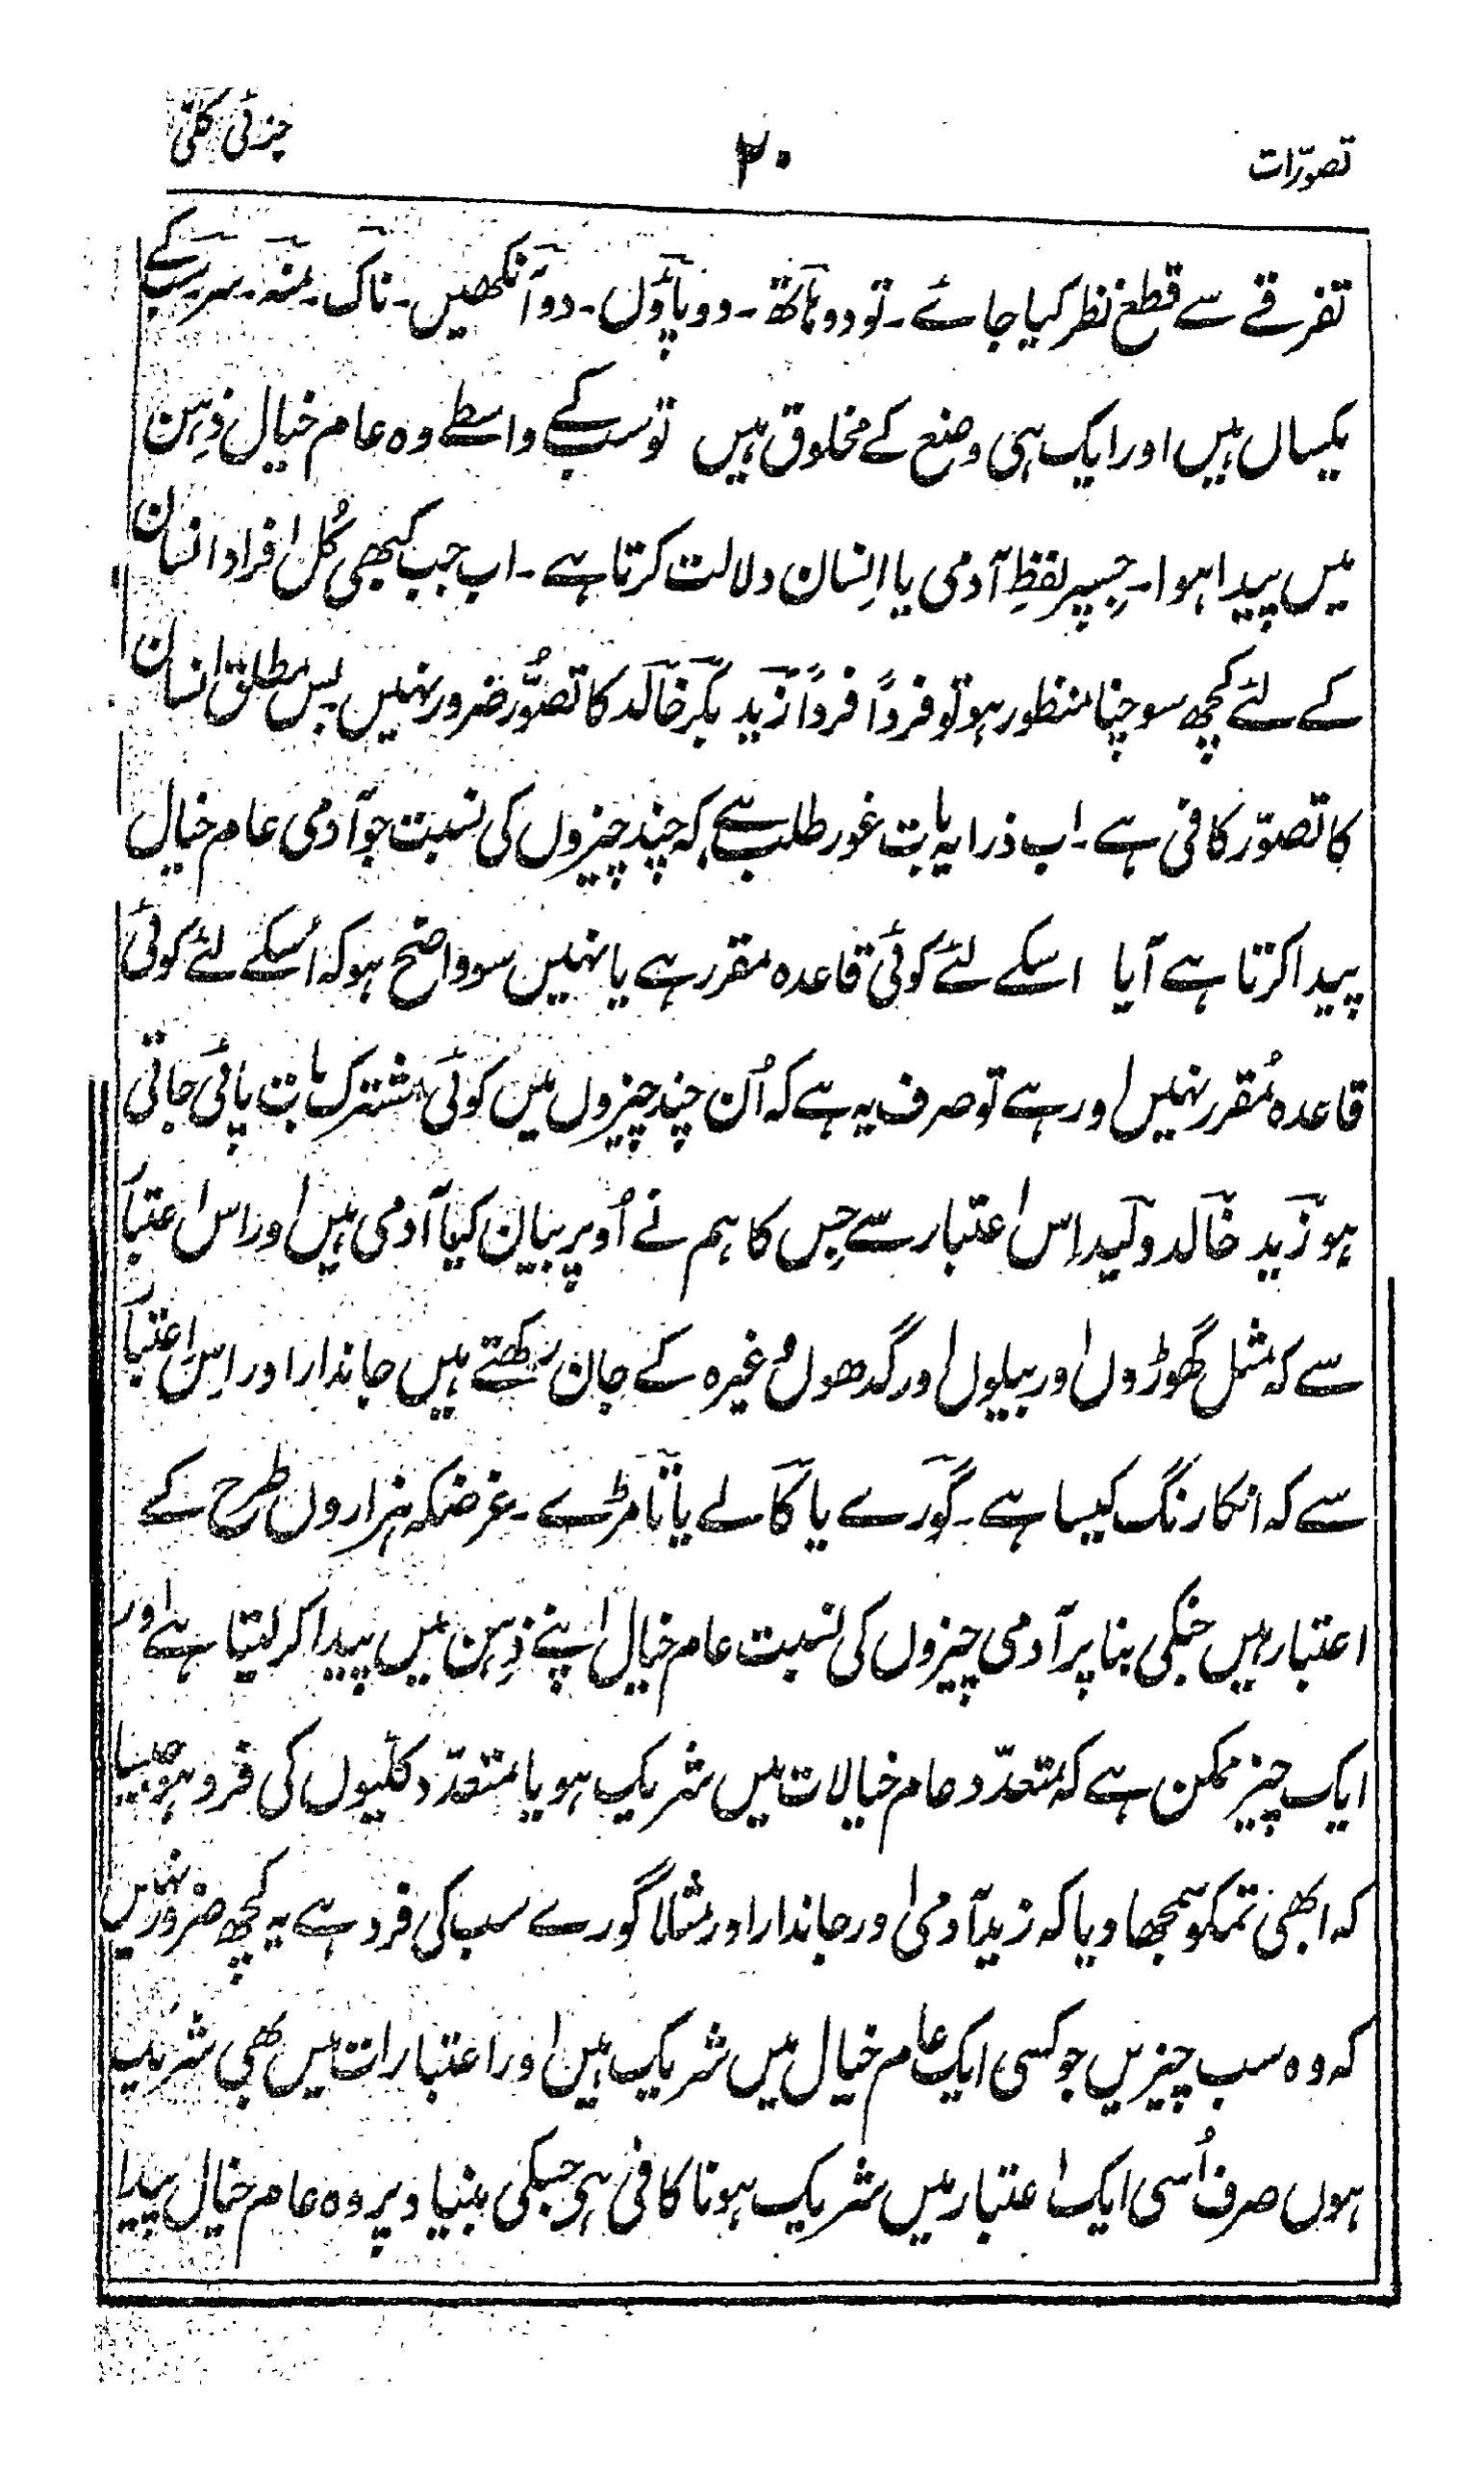 تصوّرات ۲۰ جزئی کلّی
تفرقے سے قطع نظر کیا جائے ۔ تو دو ہاتھ ۔ دو پاؤں ۔ دو آنکھیں ۔ ناک ۔ منہ ۔ سر سب کے
یکساں ہیں اور ایک ہی وضع کے مخلوق ہیں تو سب کے واسطے وہ عام خیال ذہن
میں پیدا ہوا ۔ جسپر لفظِ آدمی یا اِنسان دلالت کرتا ہے ۔ اب جب کبھی کُل افراد انسان
کے لئے کچھ سوچنا منظور ہو تو فرداً فرداً زید بکر خالد کا تصوُّر ضرور نہیں بس مطلق انسان
کا تصوّر کافی ہے ۔ اب ذرا یہ بات غور طلب ہے کہ چند چیزوں کی نسبت جو آدمی عام خیال
پیدا کرتا ہے آیا اسکے لئے کوئی قاعدہ مقرر ہے یا نہیں سو واضح ہو کہ اُسکے لئے کوئی
قاعدہ مُقرر نہیں اور ہے تو صرف یہ ہے کہ اُن چند چیزوں میں کوئی مشترک بات پائی جاتی
ہو زید خالد ولید اِس اعتبار سے جِس کا ہم نے اُوپر بیان کیا آدمی ہیں اور اس اعتبار
سے کہ مثل گھوڑوں اور بیلوں اور گدھوں وغیرہ کے جان رکھتے ہیں جاندار اور اِس اعتبار
سے کہ انکا رنگ کیسا ہے ۔ گورے یا کالے یا تامڑے ۔ غرضکہ ہزاروں طرح کے
اعتبار ہیں جنکی بنا پر آدمی چیزوں کی نسبت عام خیال اپنے ذِہن میں پیدا کر لیتا ہے اور
ایک چیز ممکن ہے کہ متعدّد عام خیالات میں شریک ہو یا متعدّد کلّیوں کی فرد ہو جیسا
کہ ابھی تمکو سمجھا دیا کہ زید آدمی اور جاندار اور مثلاً گورے سب کی فرد ہے یہ کچھ ضرور نہیں
کہ وہ سب چیزیں جو کسی ایک عام خیال میں شریک ہیں اور اعتبارات میں بھی شریک
ہوں صرف اُسی ایک اعتبار میں شریک ہونا کافی ہی جسکی بنیاد پر وہ عام خیال پیدا